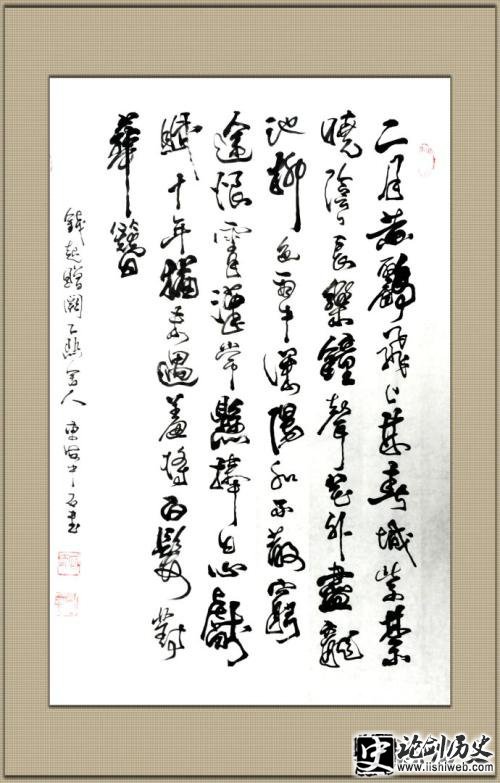 二月黃鸝飛上林春城紫禁
曉陰々長樂鐘聲花外盡龍
池柳色雨中深陽和不散窮
途恨霄漢常懸捧日心獻
賦十年猶未遇羞將白髮對
華簪
錢起贈闕下裴舍人 書
史 论剑历史
www.lishiweb.com